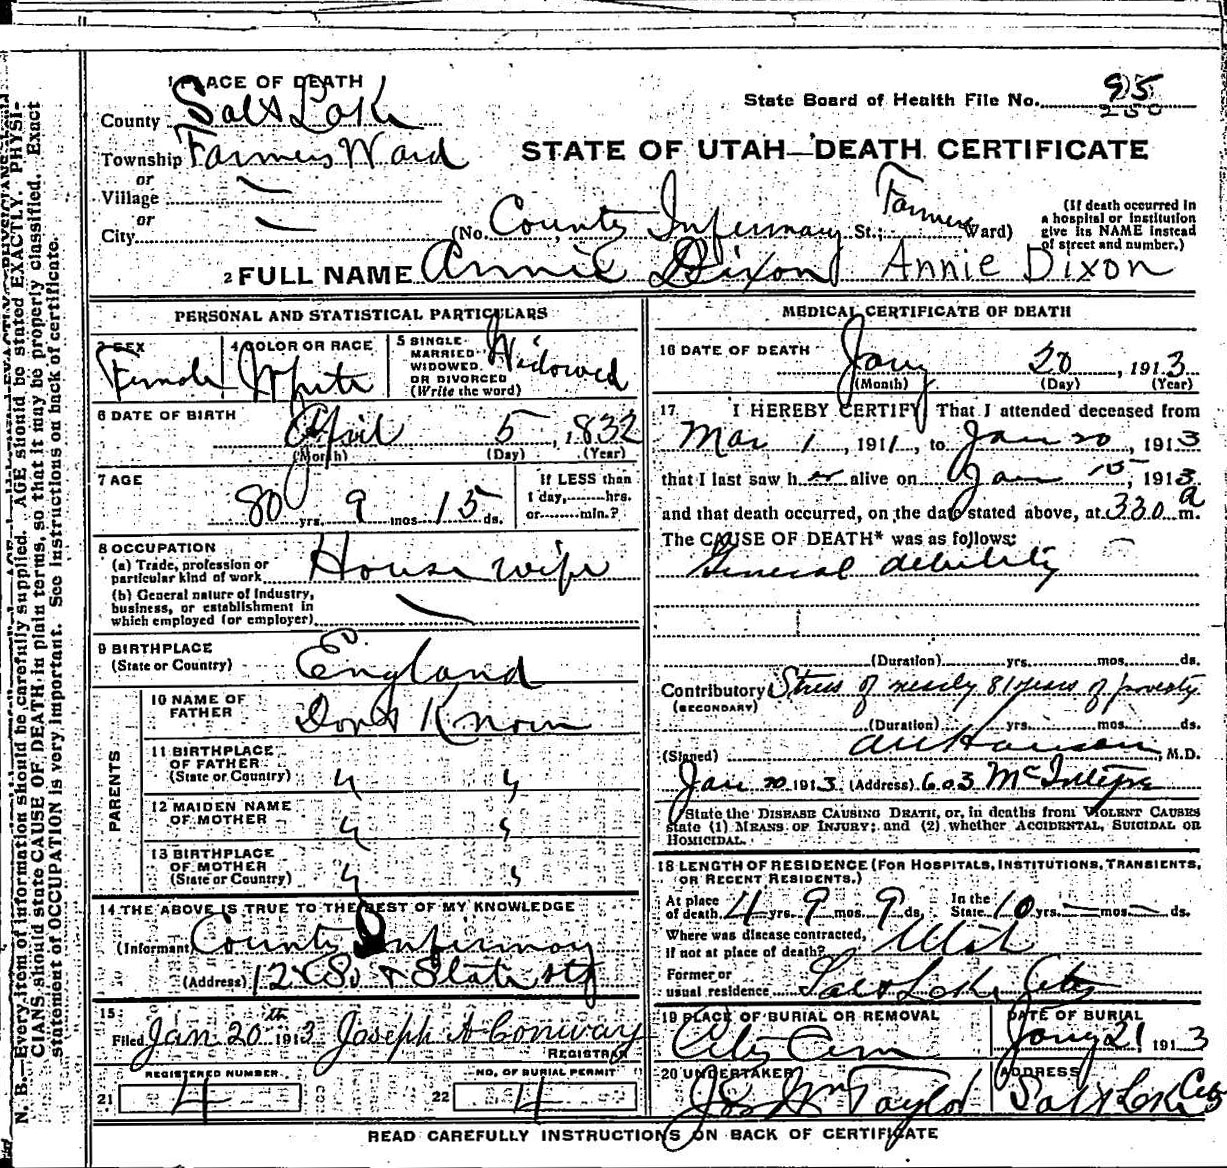 1 PLACE OF DEATH
County Salt Lake
State Board of Health File No. 95
Township Farmers Ward
STATE OF UTAH—DEATH CERTIFICATE
or
Village —
or
City — (No. County Infirmary St.; Farmers Ward)
(If death occurred in a hospital or institution give its NAME instead of street and number.)
2 FULL NAME Annie Dixon Annie Dixon
PERSONAL AND STATISTICAL PARTICULARS
3 SEX
Female
4 COLOR OR RACE
White
5 SINGLE
MARRIED
WIDOWED
OR DIVORCED
(Write the word)
Widowed
6 DATE OF BIRTH
April 5, 1832
(Month) (Day) (Year)
7 AGE
80 yrs. 9 mos. 15 ds.
If LESS than
1 day, hrs.
or min.?
8 OCCUPATION
(a) Trade, profession or
particular kind of work
House wife
(b) General nature of industry,
business, or establishment in
which employed (or employer) —
9 BIRTHPLACE
(State or Country)
England
PARENTS
10 NAME OF
FATHER
Dont Know
11 BIRTHPLACE
OF FATHER
(State or Country) " "
12 MAIDEN NAME
OF MOTHER " "
13 BIRTHPLACE
OF MOTHER
(State or Country) " "
14 THE ABOVE IS TRUE TO THE BEST OF MY KNOWLEDGE
(Informant County Infirmary
(Address) 12 So & State sts
15
Filed Jan 20th 1913 Joseph A Conway
REGISTRAR
REGISTERED NUMBER
21 4
NO. OF BURIAL PERMIT
22 4
MEDICAL CERTIFICATE OF DEATH
16 DATE OF DEATH
Jany 20, 1913
(Month) (Day) (Year)
17 I HEREBY CERTIFY, That I attended deceased from
Mar 1, 1911, to Jan 20, 1913
that I last saw her alive on Jan 15, 1913
and that death occurred, on the date stated above, at 330 a m.
The CAUSE OF DEATH* was as follows:
General debility
(Duration) yrs. mos. ds.
Contributory Stress of nearly 81 years of poverty
(SECONDARY)
(Duration) yrs. mos. ds.
(Signed) Hanson, M.D.
Jan 20 1913 (Address) 603 McIntyre
State the DISEASE CAUSING DEATH, or, in deaths from VIOLENT CAUSES
state (1) MEANS OF INJURY; and (2) whether ACCIDENTAL, SUICIDAL OR
HOMICIDAL.
18 LENGTH OF RESIDENCE (FOR HOSPITALS, INSTITUTIONS, TRANSIENTS,
OR RECENT RESIDENTS.)
At place
of death 4 yrs. 9 mos. 9 ds. In the
State 10 yrs. — mos. — ds.
Where was disease contracted,
If not at place of death? Utah
Former or
usual residence Salt Lake City
19 PLACE OF BURIAL OR REMOVAL
City Cem
DATE OF BURIAL
Jany 21, 1913
20 UNDERTAKER
Jos Wm Taylor
ADDRESS
Salt Lake City
READ CAREFULLY INSTRUCTIONS ON BACK OF CERTIFICATE
N. B.—Every item of information should be carefully supplied. AGE should be stated EXACTLY. PHYSI-
CIANS should state CAUSE OF DEATH in plain terms, so that it may be properly classified. Exact
statement of OCCUPATION is very important. See instructions on back of certificate.